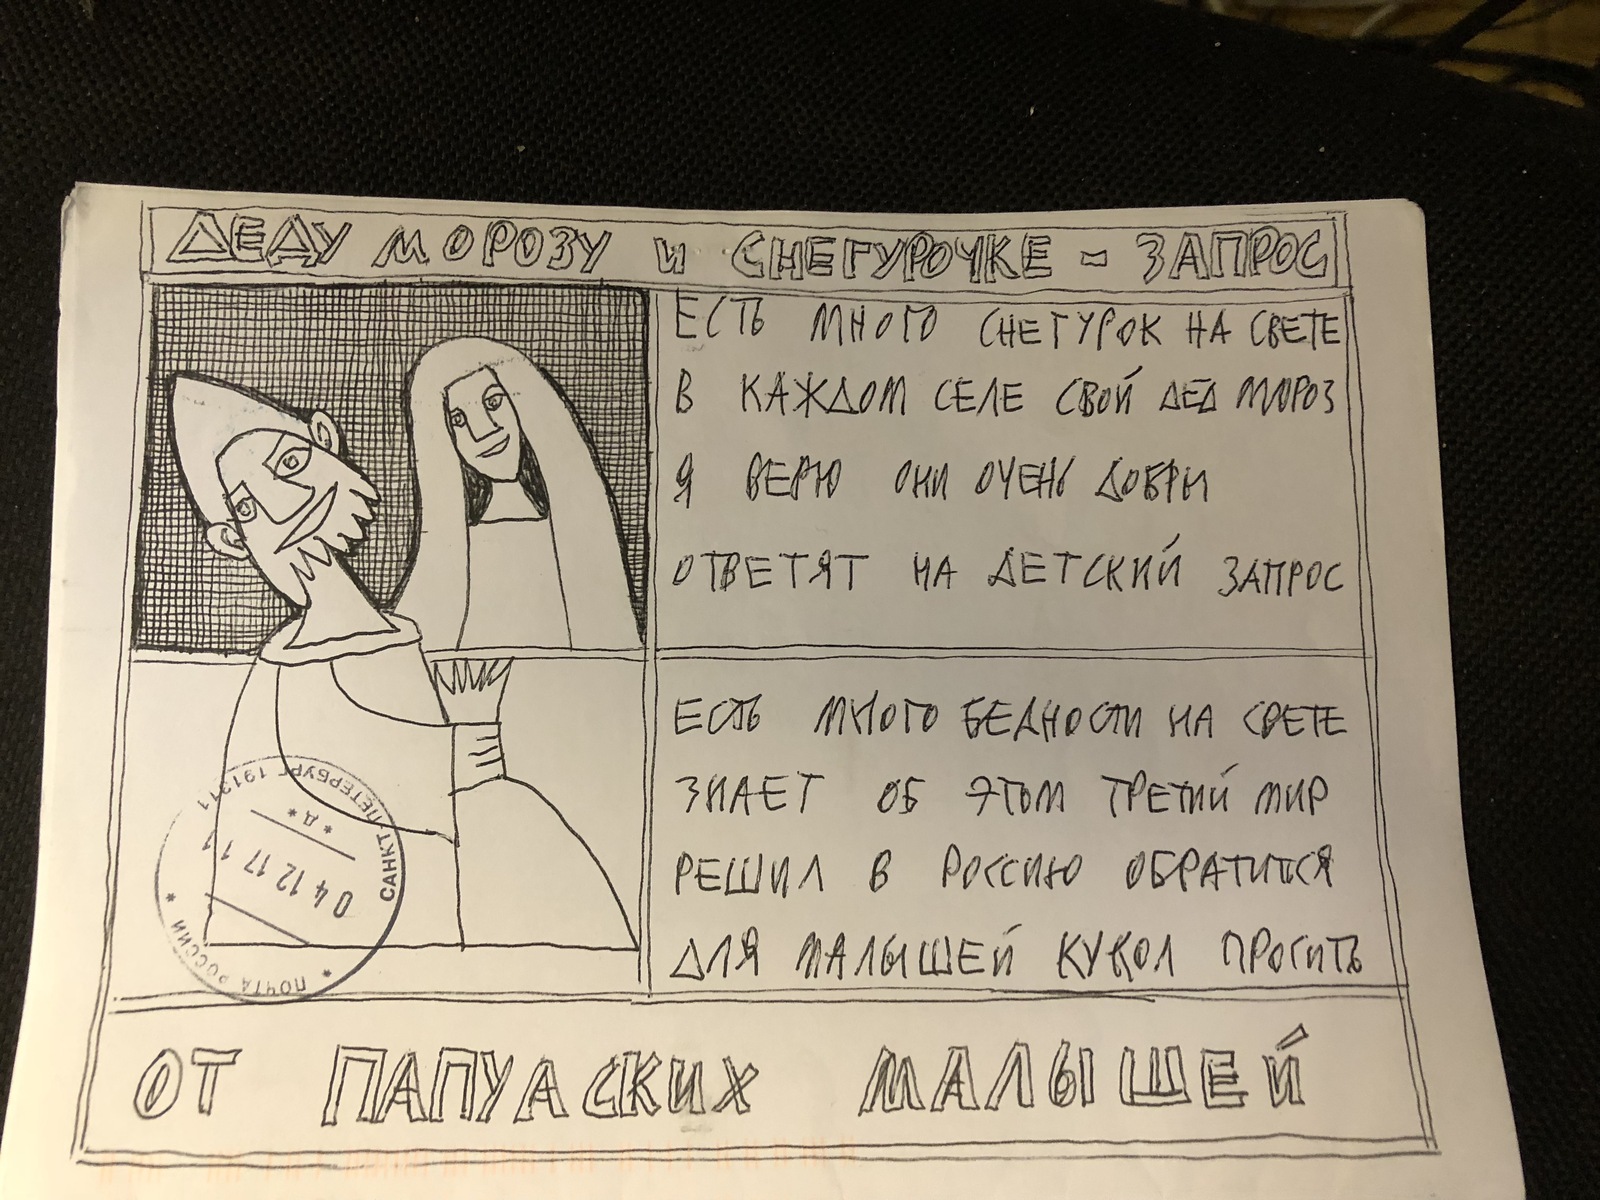 ДЕДУ МОРОЗУ И СНЕГУРОЧКЕ - ЗАПРОС
ЕСТЬ МНОГО СНЕГУРОК НА СВЕТЕ
В КАЖДОМ СЕЛЕ СВОЙ ДЕД МОРОЗ
Я ВЕРЮ ОНИ ОЧЕНЬ ДОБРЫ
ОТВЕТЯТ НА ДЕТСКИЙ ЗАПРОС
ЕСТЬ МНОГО БЕДНОСТИ НА СВЕТЕ
ЗНАЕТ ОБ ЭТОМ ТРЕТИЙ МИР
РЕШИЛ В РОССИЮ ОБРАТИТСЯ
ДЛЯ МАЛЫШЕЙ КУКОЛ ПРОСИТЬ
САНКТ-ПЕТЕРБУРГ 191311
* Д *
04 12 17 11
* ПОЧТА РОССИИ *
ОТ ПАПУАСКИХ МАЛЫШЕЙ